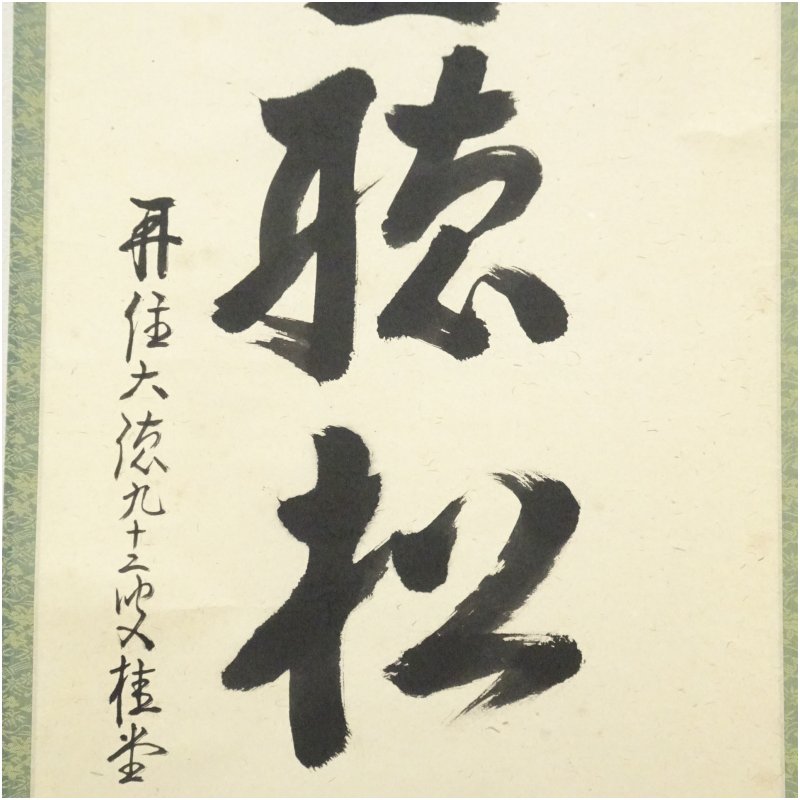 聴松
再住大徳九十二叟桂堂